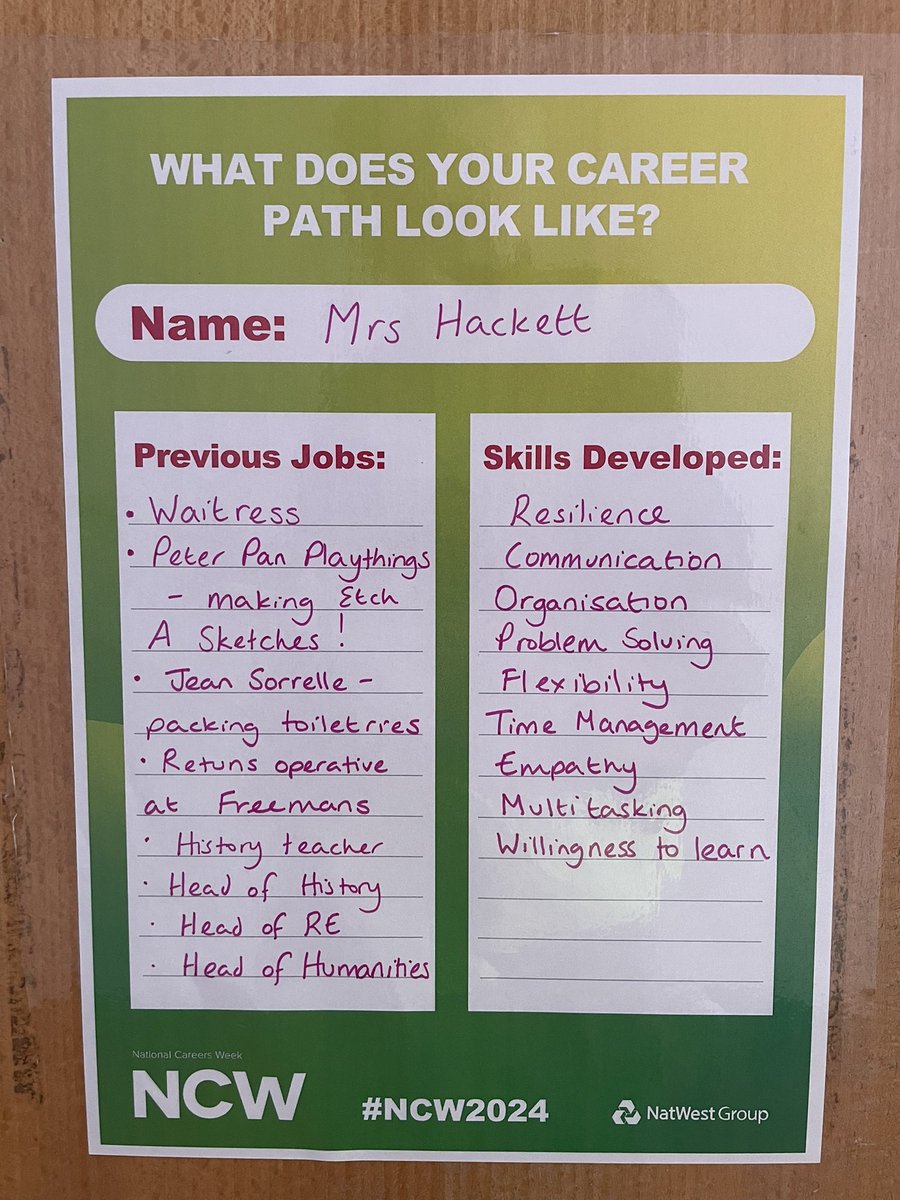 WHAT DOES YOUR CAREER
PATH LOOK LIKE?
Name: Mrs Hackett
Previous Jobs:
• Waitress
• Peter Pan Playthings
- making Etch
A Sketches!
• Jean Sorrelle -
packing toiletries
• Retuns operative
at Freemans
• History teacher
• Head of History
• Head of RE
• Head of Humanities
Skills Developed:
Resilience
Communication
Organisation
Problem Solving
Flexibility
Time Management
Empathy
Multitasking
Willingness to learn
National Careers Week
NCW
#NCW2024
NatWest Group